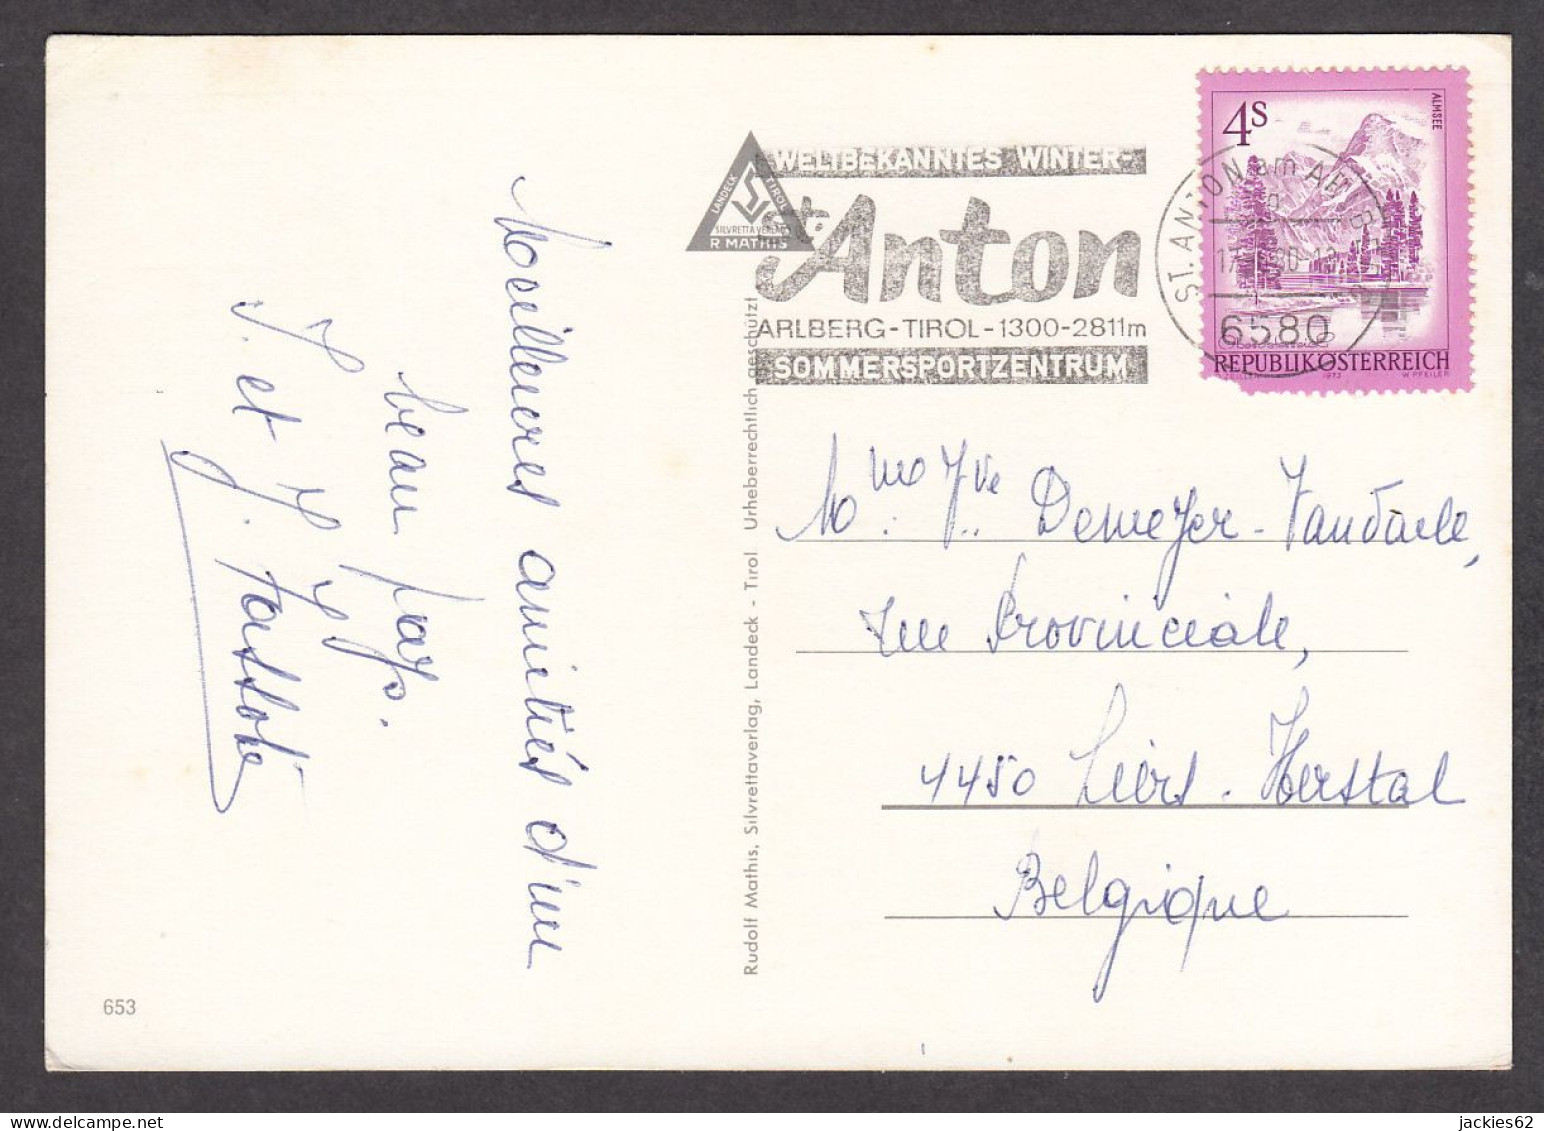 Meilleures amitiés d'un
beau pays.
J. et J.
653
Rudolf Mathis, Silvrettaverlag, Landeck - Tirol Urheberrechtlich geschützt
LANDECK TIROL
SILVRETTAVERLAG
R MATHIS
WELTBEKANNTES WINTER-
St. Anton
ARLBERG-TIROL-1300-2811m
SOMMERSPORTZENTRUM
ST. ANTON am ARLBERG
6580
4S
ALMSEE
REPUBLIK ÖSTERREICH
1973 W. PFEILER
Mme Vve Demeyer-Vandaele,
rue Provinciale,
4450 Liers. Herstal
Belgique
jackies62